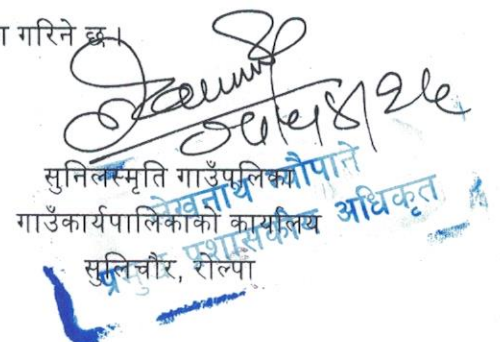 ा गरिने छ।
सुनिलस्मृति गाउँपालिका
गाउँकार्यपालिकाको कार्यालय
सुलिचौर, रोल्पा
लेखनाथ न्यौपाने
प्रमुख प्रशासकीय अधिकृत